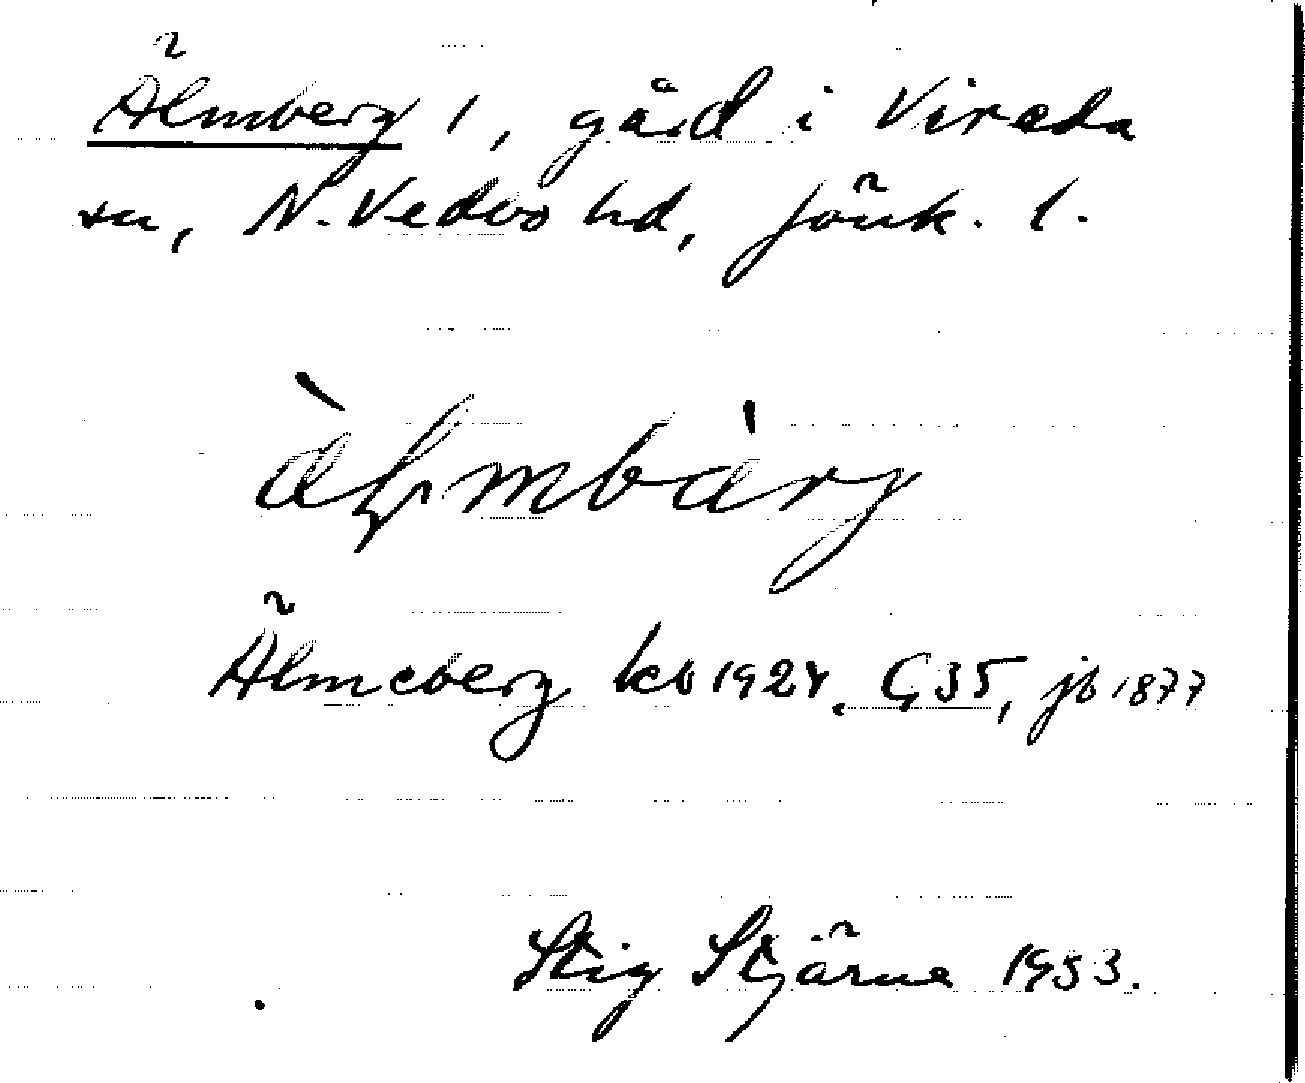 Älmberg 1, gård i Vireda
sn, N. Vedbo hd, Jönk. l.
Älmeberg kb 1924. G35, jb 1877
Stig Stjärne 1953.